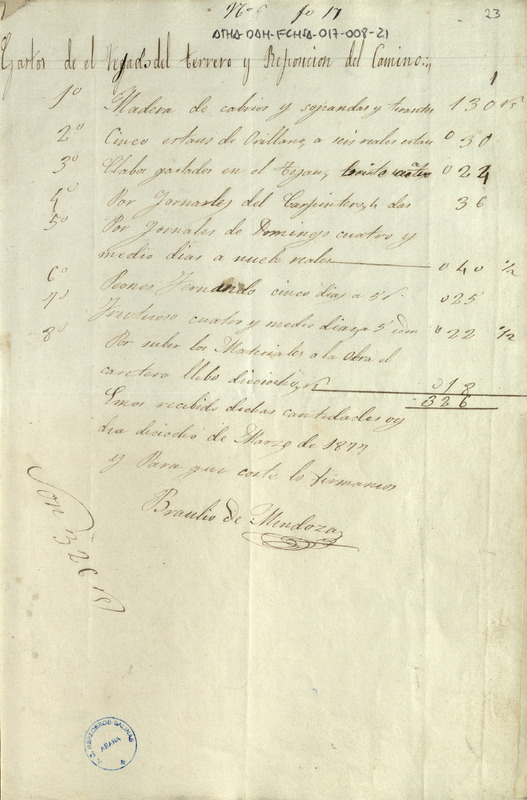 Nº 6 fo 17
23
ATHA-DAH-FCHSA-017-008-21
Gastos de el Tejado del terrero y Reposicion del Camino
1º Madera de cabrios y sopandas y tirantes 130 rs
2º Cinco estaus de Orillana a seis reales estau 030
3º Clabos gastados en el tejau, beinte cuatro 024
4º Por Jornales del Carpintero, 4 dias 36
5º Por Jornales de Domingo cuatro y
medio dias a nuebe reales 040 1/2
6º Peones Fernando cinco dias a 5 r. 025
7º Frutuoso cuatro y medio dias, a 5 idem 022 1/2
8º Por subir los Materiales a la obra el
caretero llebo dieciocho, rs 018
326
Emos recibido dichas cantidades oy
dia dieciocho de Marzo de 1877
y Para que coste lo firmamos
Braulio de Mendoza
Son 326 rs
HEREDEROS SALINAS
AÑANA